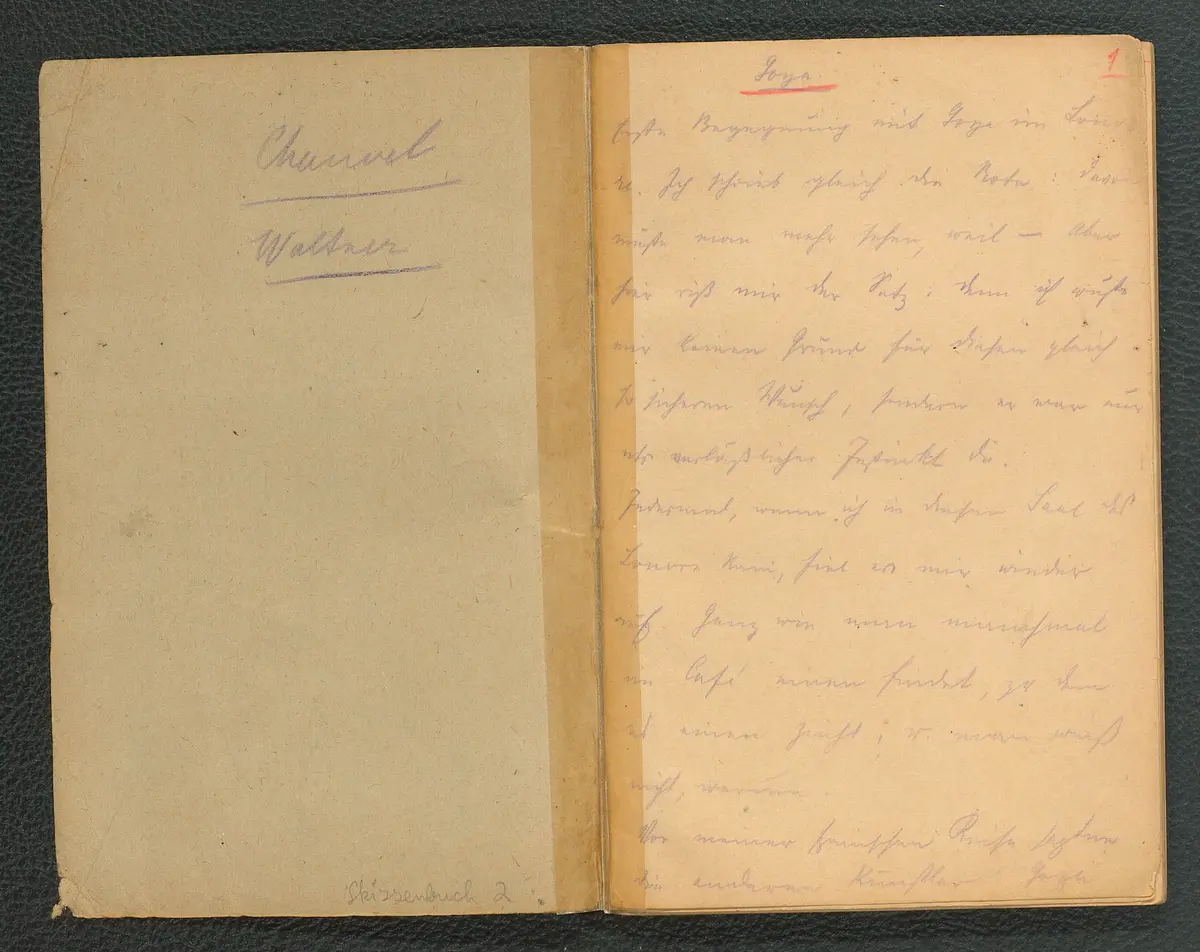 Chauvel
Waltner
Skizzenbuch 2
1
Goya.
Erste Begegnung mit Goya im Louv-
re. Ich schrieb gleich die Note: Davon
müßte man mehr sehen, weil – Aber
hier riß mir der Satz: denn ich wußte
mir keinen Grund für diesen gleich
so sicheren Wunsch, sondern er war nur
als verläßlicher Instinkt da.
Jedesmal, wenn ich in diesen Saal des
Louvre kam, fiel es mir wieder
auf. Ganz wie man manchmal
im Café einen findet, zu dem
es einen zieht; u. man weiß
nicht, warum.
Vor meiner spanischen Reise
die anderen Künstler Goya